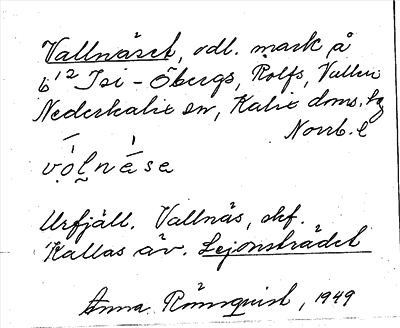 Vallnäset, odl. mark å
6¹² Isi-Öbergs, Rolfs, Vallen
Nederkalix sn, Kalix doms. tg
Norrb. l
vọ́l̥nä́se
Urfjäll. Vallnäs, skf.
Kallas äv. Lejonsträdet
Anna Rönnqvist, 1949